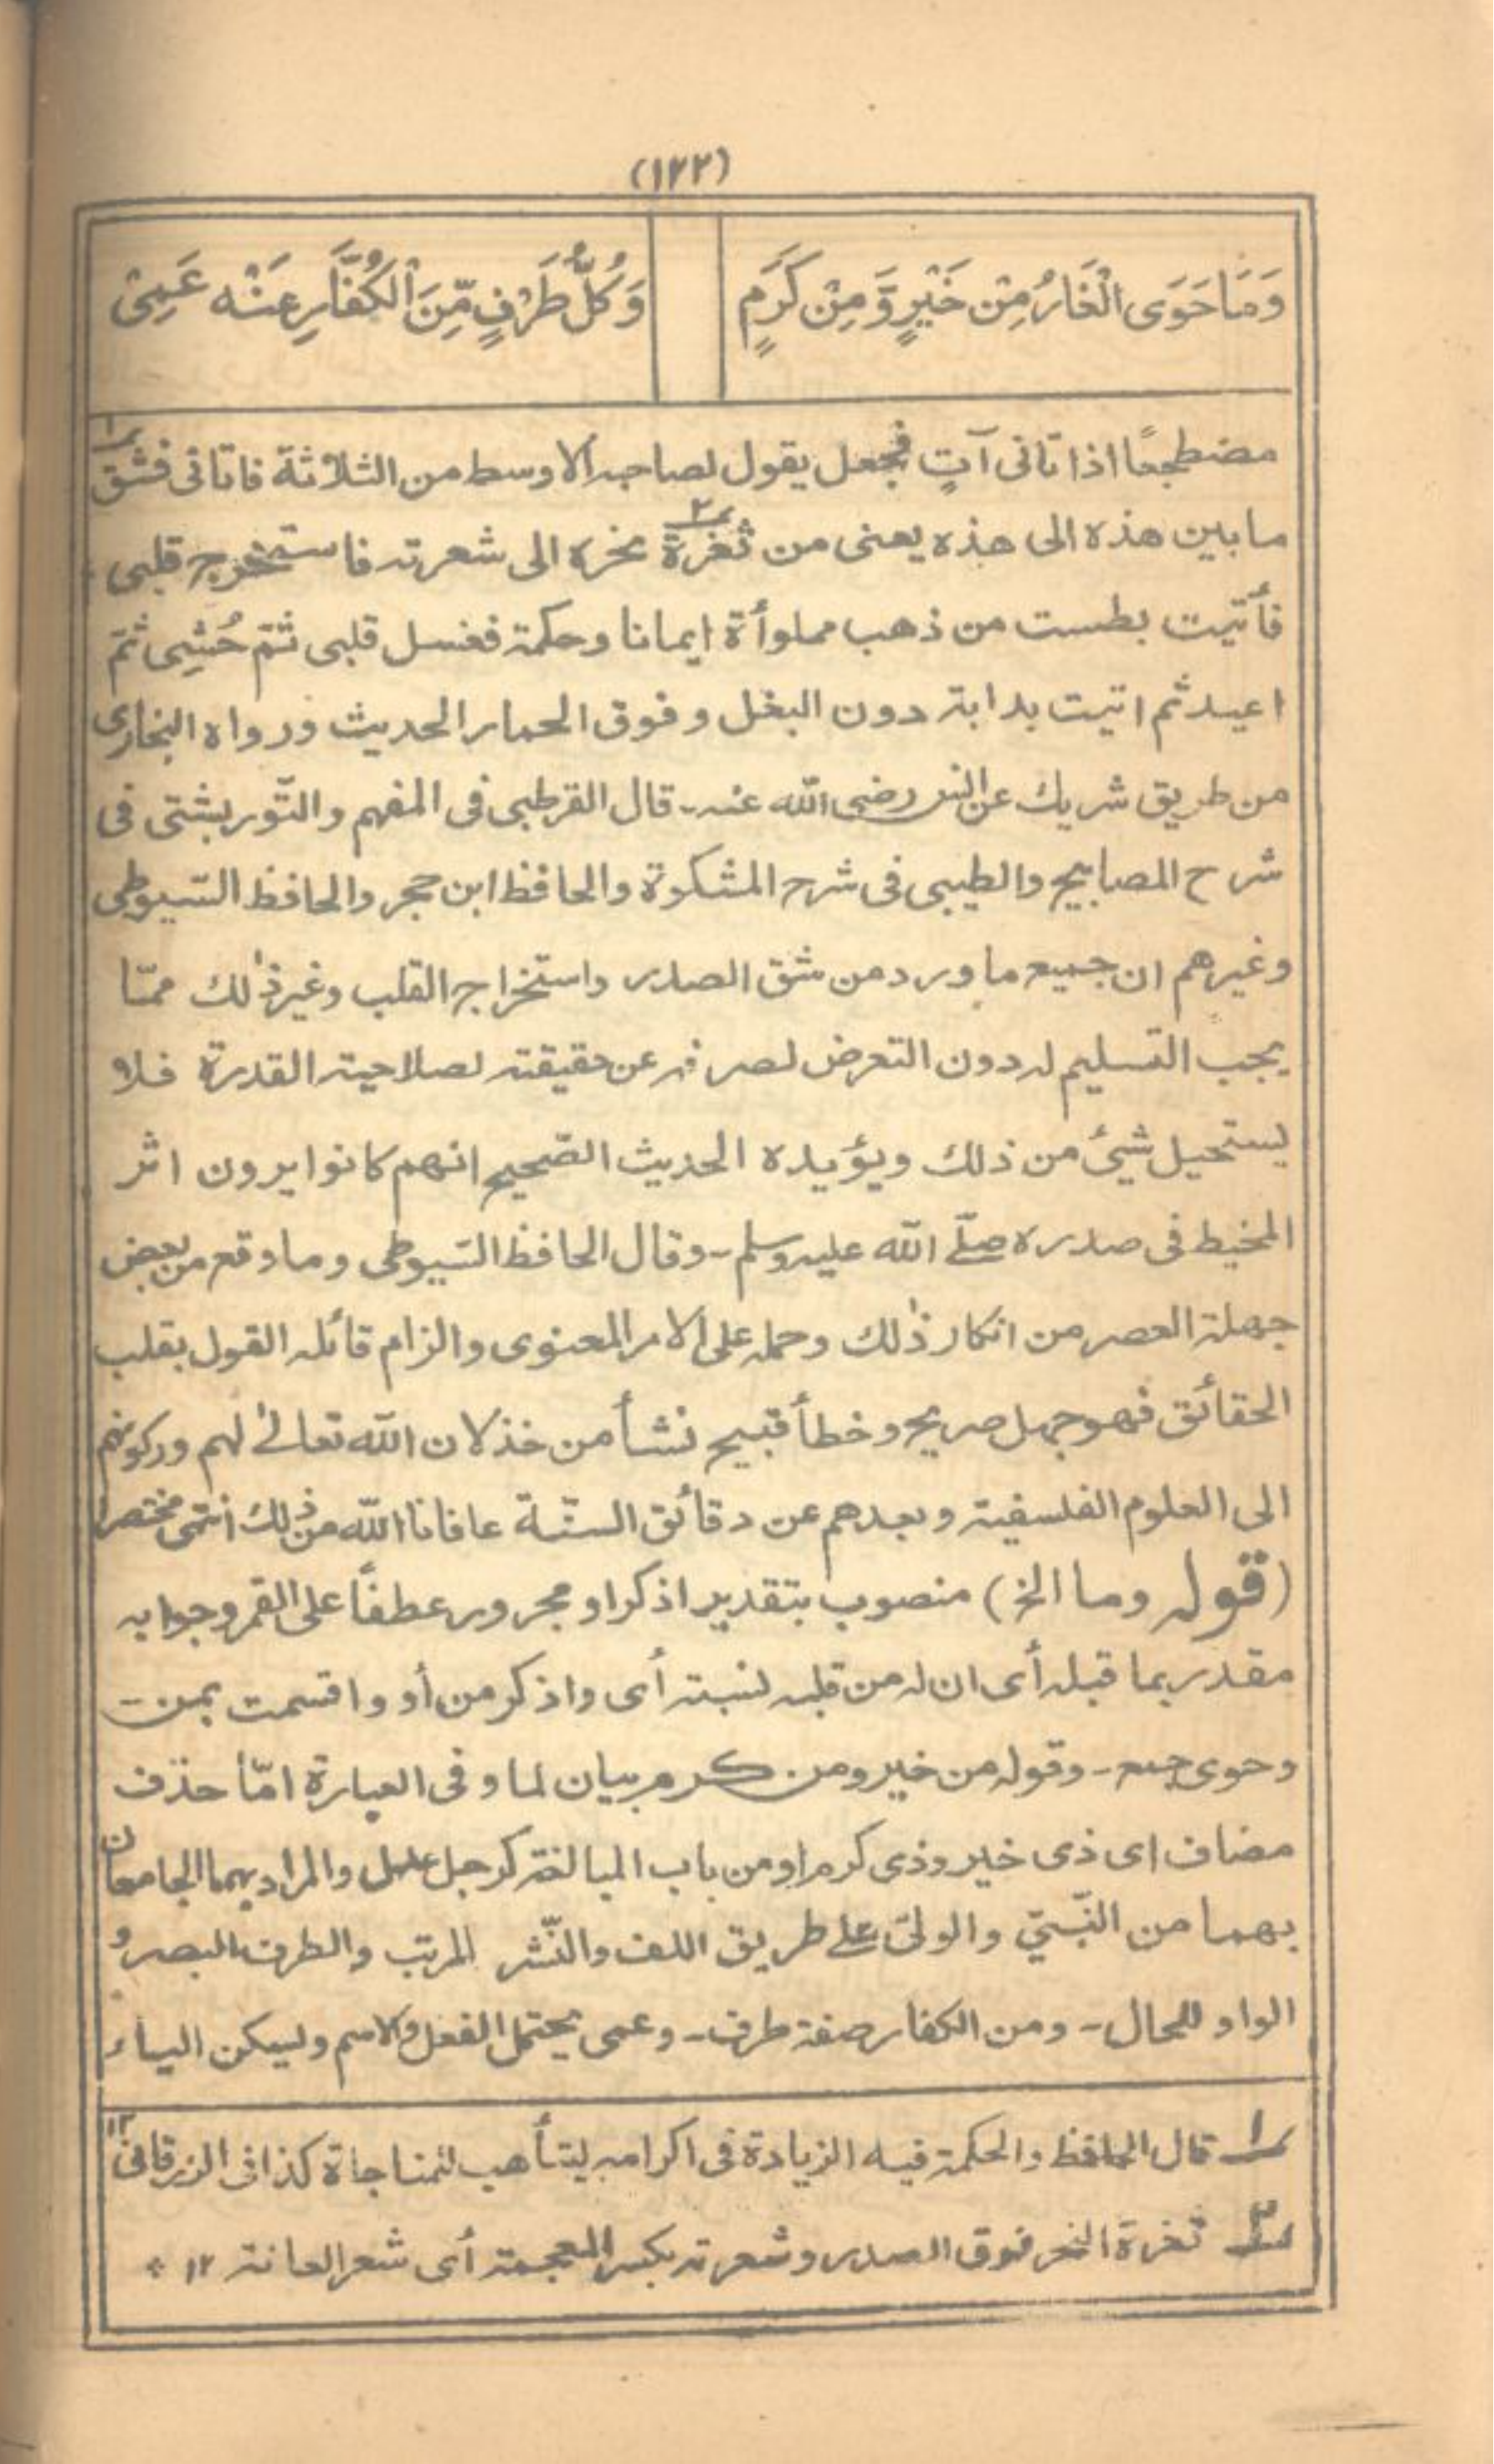 (١٢٢)
وَمَا حَوَى الْغَارُ مِنْ خَيْرٍ وَّمِنْ كَرَمٍ
وَكُلُّ طَرْفٍ مِّنَ الْكُفَّارِ عَنْه عَمِىْ
مضطجعًا اذا تانى آتٍ فجعل يقول لصاحبه الاوسط من الثلاثة فاتانى فشق ١
مابين هذه الى هذه يعنى من ثغرة ٢ نحره الى شعرته فاستخرج قلبى
فأتيت بطست من ذهب مملوأة ايمانا وحكمة فغسل قلبى ثمّ حُشِى ثمّ
اعيد ثم اتيت بدابة دون البغل وفوق الحمار الحديث ورواه البخارى
من طريق شريك عن انس رضى الله عنه ـ قال القرطبى فى المفهم والتّوربشتى فى
شرح المصابيح والطيبى فى شرح المشكوة والحافظ ابن حجر والحافظ السّيوطى
وغيرهم ان جميع ما ورد من شق الصدر واستخراج القلب وغير ذٰلك ممّا
يجب التسليم له دون التعرض لصرفه عن حقيقته لصلاحية القدرة فلا
يستحيل شيئ من ذلك ويؤيده الحديث الصّحيح انهم كانوا يرون اثر
المخيط فى صدره صلّے الله عليه وسلم ـ وقال الحافظ السّيوطى وما وقع من بعض
جهلة العصر من انكار ذٰلك وحمله على الامر المعنوى والزام قائله القول بقلب
الحقائق فهو جهل صريح وخطأ قبيح نشأ من خذلان الله تعالىٰ لهم وركونهم
الى العلوم الفلسفية وبعدهم عن دقائق السنّة عافانا الله من ذلك انتهى مختصرا
(قوله وما الخ) منصوب بتقدير اذكر او مجرور عطفًا على القمر وجوابه
مقدر بما قبله أى ان له من قلبه نسبة أى واذكر من أو واقسمت بمن
وحوى جمع ـ وقوله من خير ومن كرم بيان لما وفى العبارة امّا حذف
مضاف اى ذى خير وذى كرم او من باب المبالغة كرجل عدل والمراد بهما الجامعان
بهما من النّبىّ والولىّ علے طريق اللف والنّشر المرتب والطرف البصر و
الواو للحال ـ ومن الكفار صفة طرف ـ وعمى يحتمل الفعل والاسم وليسكن الياء
١ قال الحافظ والحكمة فيه الزيادة فى اكرامه ليتأهب للمناجاة كذا فى الزرقانى ١٢
٢ ثغرة النحر فوق الصدر وشعرته بكسر المعجمة أى شعر العانة ١٢ *